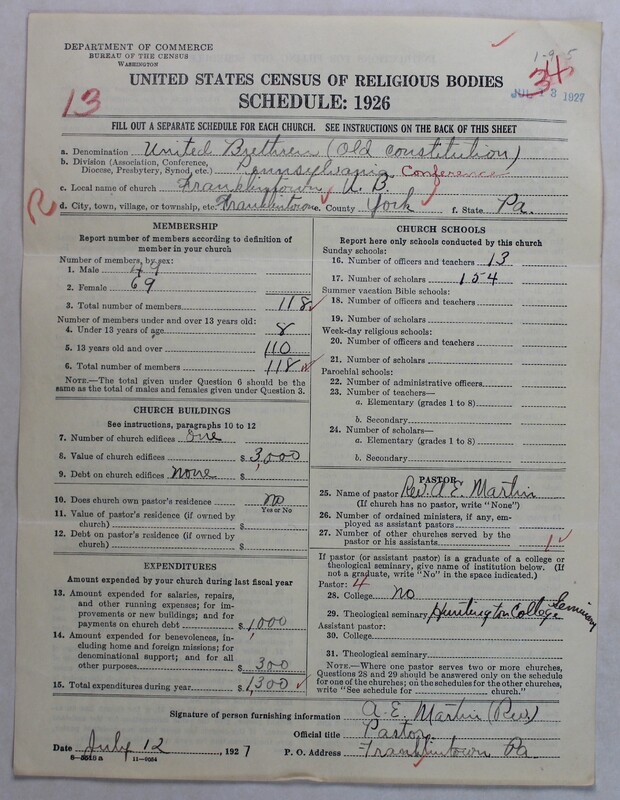 DEPARTMENT OF COMMERCE
BUREAU OF THE CENSUS
WASHINGTON
UNITED STATES CENSUS OF RELIGIOUS BODIES
SCHEDULE: 1926
13
34
JUL 13 1927
FILL OUT A SEPARATE SCHEDULE FOR EACH CHURCH. SEE INSTRUCTIONS ON THE BACK OF THIS SHEET
a. Denomination United Brethren (Old Constitution)
b. Division (Association, Conference, Diocese, Presbytery, Synod, etc.) Pennsylvania Conference
c. Local name of church Franklintown U. B.
d. City, town, village, or township, etc. Franklintown e. County York f. State Pa.
R
MEMBERSHIP
Report number of members according to definition of
member in your church
Number of members, by sex:
1. Male 49
2. Female 69
3. Total number of members 118
Number of members under and over 13 years old:
4. Under 13 years of age 8
5. 13 years old and over 110
6. Total number of members 118
NOTE.—The total given under Question 6 should be the
same as the total of males and females given under Question 3.
CHURCH BUILDINGS
See instructions, paragraphs 10 to 12
7. Number of church edifices One
8. Value of church edifices $ 3,000
9. Debt on church edifices None $
10. Does church own pastor's residence no
Yes or No
11. Value of pastor's residence (if owned by
church) $
12. Debt on pastor's residence (if owned by
church) $
EXPENDITURES
Amount expended by your church during last fiscal year
13. Amount expended for salaries, repairs,
and other running expenses; for im-
provements or new buildings; and for
payments on church debt $ 1,000
14. Amount expended for benevolences, in-
cluding home and foreign missions; for
denominational support; and for all
other purposes $ 300
15. Total expenditures during year $ 1,300
CHURCH SCHOOLS
Report here only schools conducted by this church
Sunday schools:
16. Number of officers and teachers 13
17. Number of scholars 154
Summer vacation Bible schools:
18. Number of officers and teachers
19. Number of scholars
Week-day religious schools:
20. Number of officers and teachers
21. Number of scholars
Parochial schools:
22. Number of administrative officers
23. Number of teachers—
a. Elementary (grades 1 to 8)
b. Secondary
24. Number of scholars—
a. Elementary (grades 1 to 8)
b. Secondary
PASTOR
25. Name of pastor Rev. A. E. Martin
(If church has no pastor, write "None")
26. Number of ordained ministers, if any, em-
ployed as assistant pastors
27. Number of other churches served by the
pastor or his assistants 1
If pastor (or assistant pastor) is a graduate of a college or
theological seminary, give name of institution below. (If
not a graduate, write "No" in the space indicated.)
Pastor: 4
28. College No
29. Theological seminary Huntington College Seminary
Assistant pastor:
30. College
31. Theological seminary
NOTE.—Where one pastor serves two or more churches,
Questions 28 and 29 should be answered only on the schedule
for one of the churches; on the schedules for the other churches,
write "See schedule for church."
Signature of person furnishing information A. E. Martin (Rev)
Official title Pastor
Date July 12, 1927 P. O. Address Franklintown Pa.
8—5518 a 11—9034